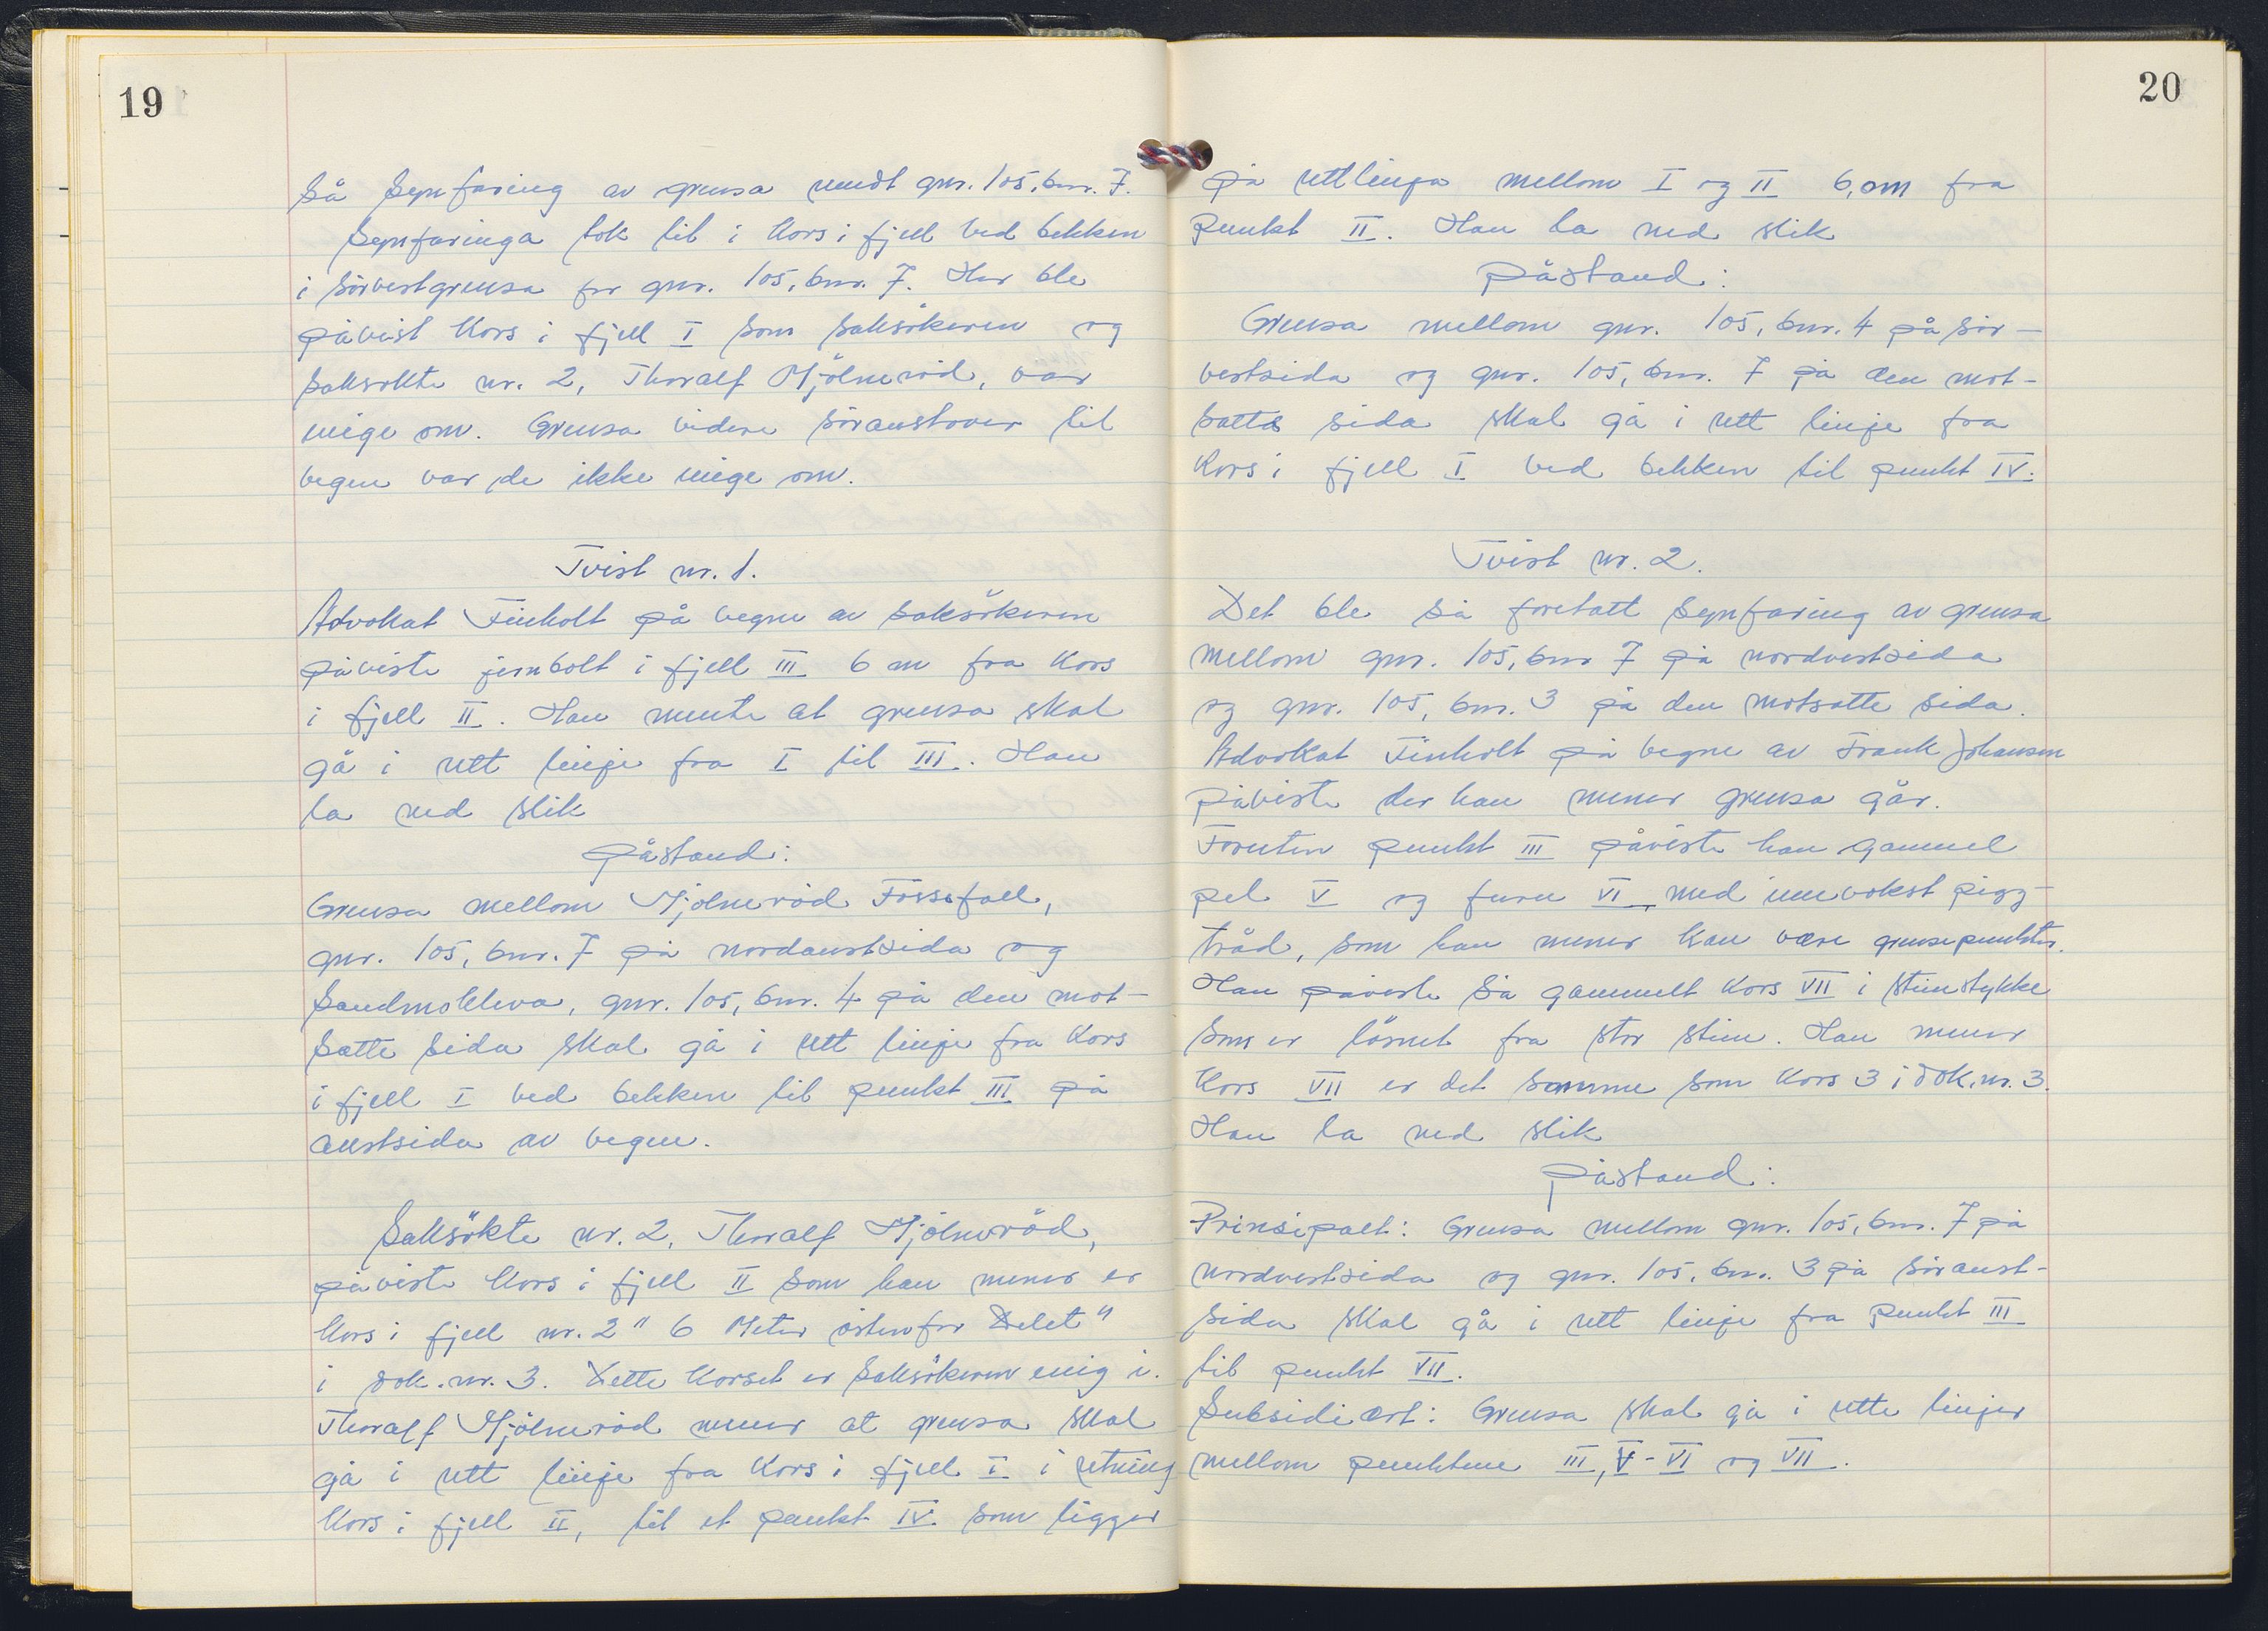 19
Så synfaring av grensa rundt gnr. 105, bnr. 7.
Synfaringa tok til i kors i fjell ved bekken
i sörvestgrensa for gnr. 105, bnr. 7. Her ble
påvist kors i fjell I som saksökeren og
saksökte nr. 2, Thoralf Mjölneröd, var
enige om. Grensa videre söraustover til
vegen var de ikke enige om.
Tvist nr. 1.
Advokat Finholt på vegne av saksökeren
påviste jernbolt i fjell III 6 m fra kors
i fjell II. Han mente at grensa skal
gå i rett linje fra I til III. Han
la ned slik
påstand:
Grensa mellom Mjölneröd Fossefall,
gnr. 105, bnr. 7 på nordaustsida og
Sandmokleva, gnr. 105, bnr. 4 på den mot-
satte sida skal gå i rett linje fra kors
i fjell I ved bekken til punkt III på
austsida av vegen.
Saksökte nr. 2, Thoralf Mjölneröd,
påviste kors i fjell II som han mener er
kors i fjell nr. 2 " 6 Meter östenfor Delet "
i dok. nr. 3. Dette korset er saksökeren enig i.
Thoralf Mjölneröd mener at grensa skal
gå i rett linje fra kors i fjell I i retning
kors i fjell II, til et punkt IV som ligger
20
på rettlinja mellom I og II 6,0m fra
punkt II. Han la ned slik
påstand:
Grensa mellom gnr. 105, bnr. 4 på sör-
vestsida og gnr. 105, bnr. 7 på den mot-
satte sida skal gå i rett linje fra
kors i fjell I ved bekken til punkt IV.
Tvist nr. 2.
Det ble så foretatt synfaring av grensa
mellom gnr. 105, bnr 7 på nordvestsida
og gnr. 105, bnr. 3 på den motsatte sida.
Advokat Finholt på vegne av Frank Johansen
påviste der han mener grensa går.
Foruten punkt III påviste han gammel
pel V og furu VI, med innvokst pigg-
tråd, som han mener kan være grensepunkter.
Han påviste så gammelt kors VII i steinstykke
som er lösnet fra stor stein. Han mener
kors VII er det samme som kors 3 i dok. nr. 3.
Han la ned slik
påstand:
Prinsipalt: Grensa mellom gnr. 105, bnr. 7 på
nordvestsida og gnr. 105, bnr. 3 på söraust-
sida skal gå i rett linje fra punkt III
til punkt VII.
Subsidiært: Grensa skal gå i rette linjer
mellom punktene III, V - VI og VII.